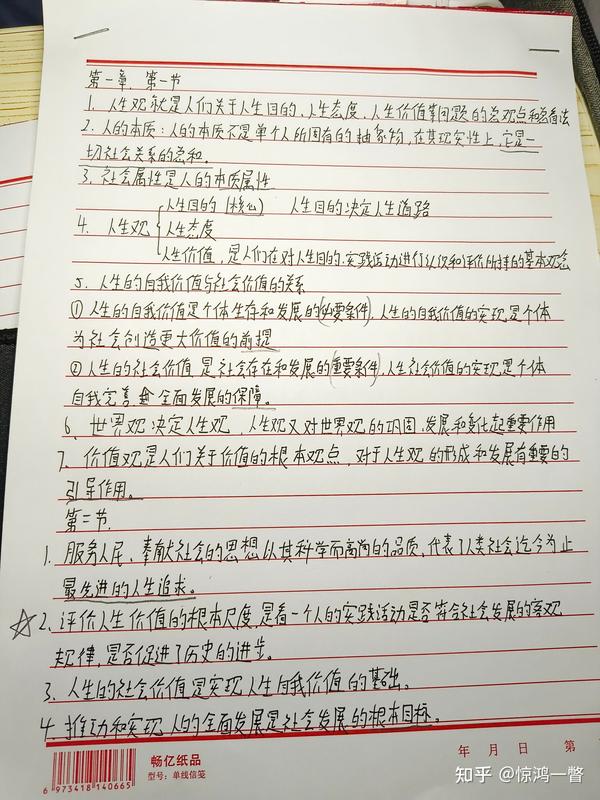 第一章. 第一节
1. 人生观就是人们关于人生目的、人生态度、人生价值等问题的总观点和总看法
2. 人的本质:人的本质不是单个人所固有的抽象物,在其现实性上,它是一
切社会关系的总和.
3. 社会属性是人的本质属性
人生目的(核心) 人生目的决定人生道路
4. 人生观 人生态度
人生价值,是人们在对人生目的、实践活动进行认识和评价所持的基本观念
5. 人生的自我价值与社会价值的关系
① 人生的自我价值是个体生存和发展的(必要条件),人生的自我价值的实现是个体
为社会创造更大价值的前提
② 人生的社会价值是社会存在和发展的(重要条件),人生社会价值的实现是个体
自我完善 全面发展的保障。
6. 世界观决定人生观,人生观又对世界观的巩固、发展和变化起重要作用
7. 价值观是人们关于价值的根本观点,对于人生观的形成和发展有重要的
引导作用。
第二节.
1. 服务人民、奉献社会的思想以其科学而高尚的品质,代表了人类社会迄今为止
最先进的人生追求。
☆2. 评价人生价值的根本尺度,是看一个人的实践活动是否符合社会发展的客观
规律,是否促进了历史的进步。
3. 人生的社会价值是实现人生自我价值的基础。
4. 推动和实现人的全面发展是社会发展的根本目标。
畅亿纸品
型号:单线信笺
6 973418 140665
年 月 日 第
知乎 @惊鸿一瞥